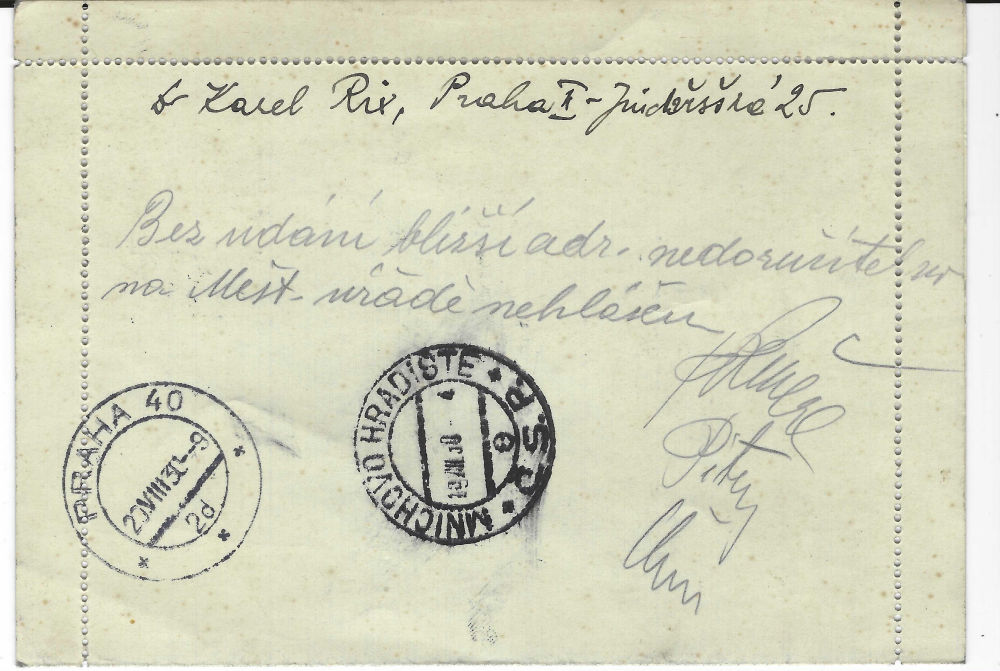 Dr Karel Rix, Praha II - Jindřišská 25.
Bez udání bližší adr. nedoručitelno
na Měst. úřadě nehlášen
PRAHA 40
20.VIII 30-8
2d
MNICHOVO HRADIŠTĚ
Č.S.R.
19.VIII.30